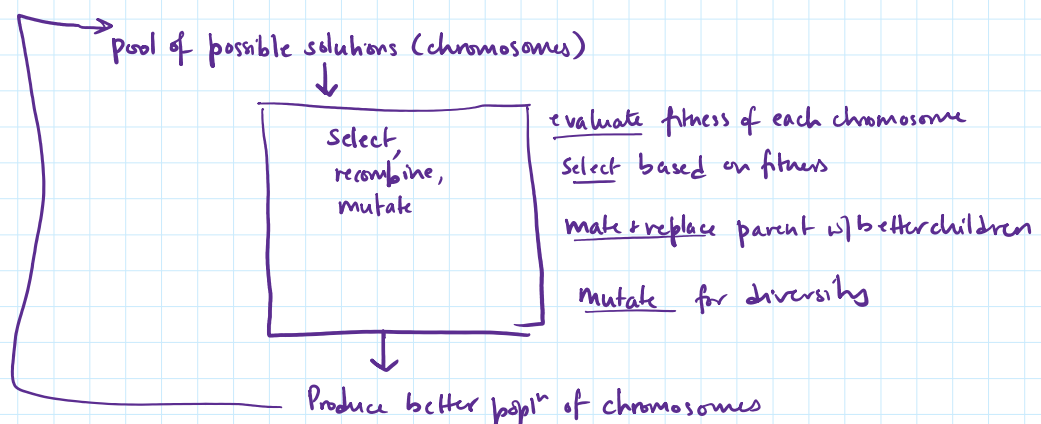 pool of possible solutions (chromosomes)
select,
recombine,
mutate
evaluate fitness of each chromosome
select based on fitness
mate + replace parent w/ better children
mutate for diversity
Produce better popln of chromosomes